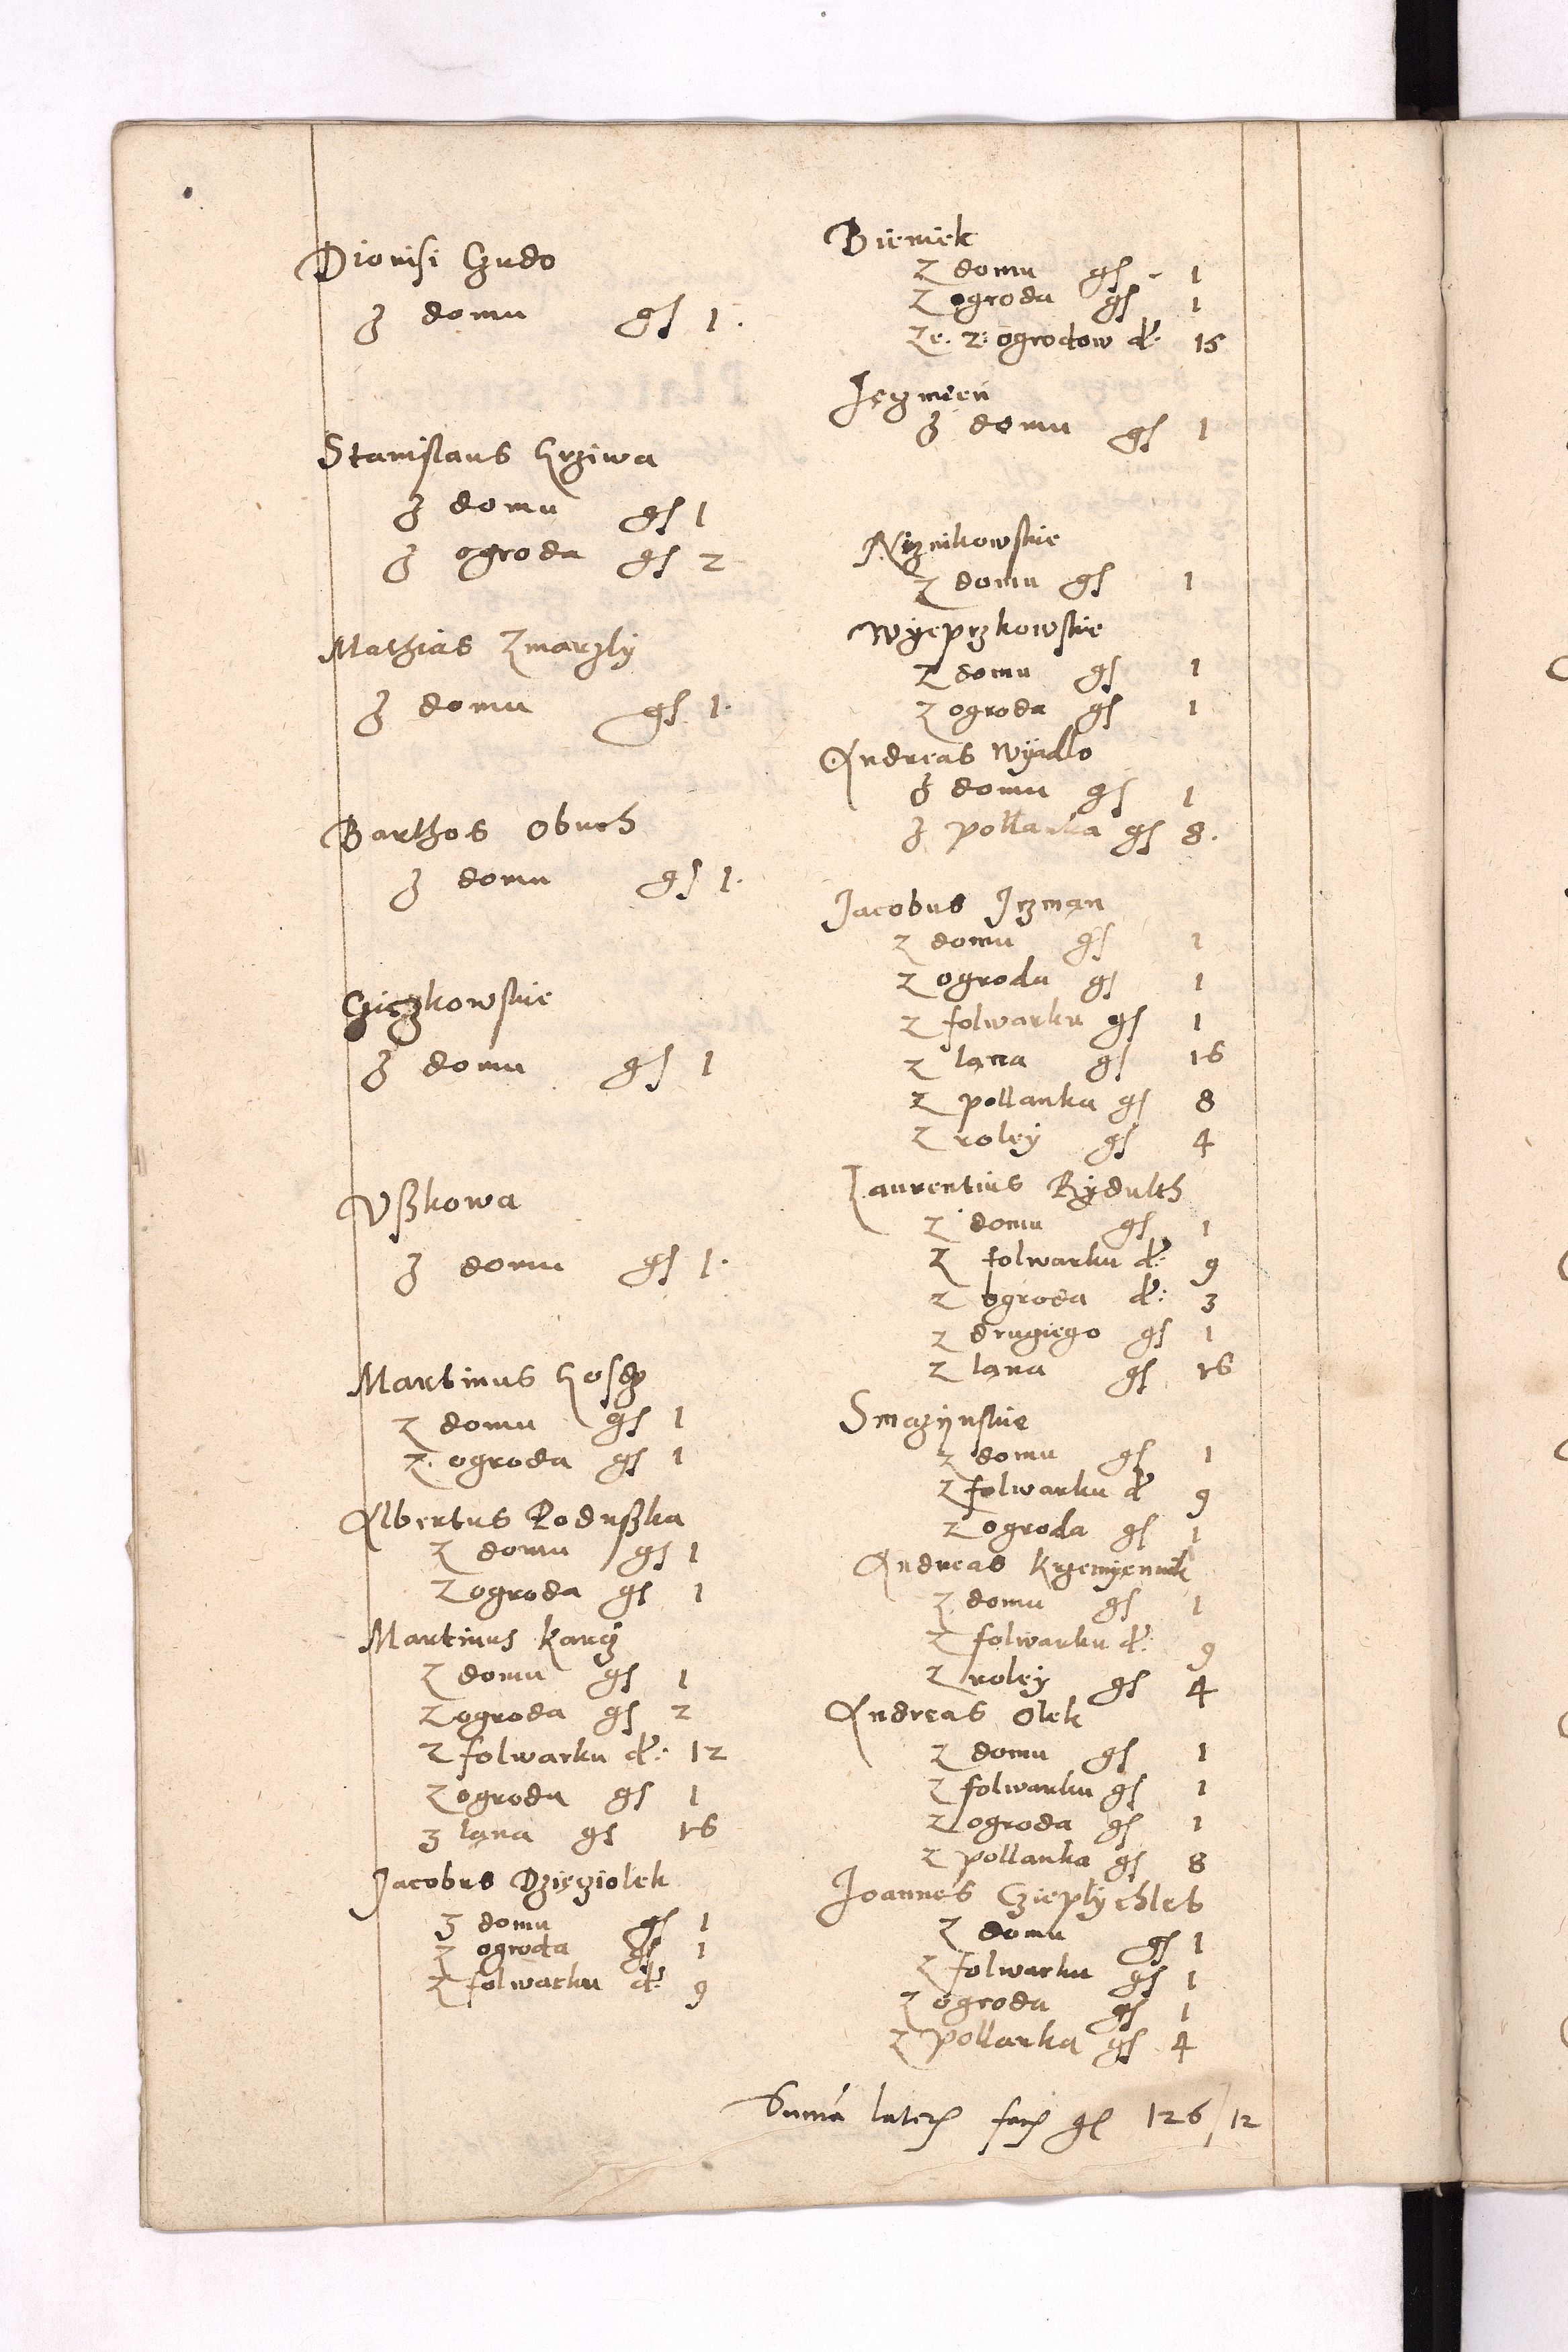 Dionisi Czudo
z domu gs 1.
Stanislaus Krziwa
z domu gs 1
z ogroda gs 2
Mathias Zmarzly
z domu gs 1.
Barthos Obuch
z domu gs 1.
Cziczkowskie
z domu gs 1
Vßkowa
z domu gs 1.
Martinus
z domu gs 1
z ogroda gs 1
Albertus Rodußka
z domu gs 1
z ogroda gs 1
Martinus Karcz
z domu gs 1
z ogroda gs 2
z folwarku d: 12
z ogroda gs 1
z lana gs 16
Jacobus Dzięcziolek
z domu gs 1
z ogroda gs 1
z folwarku d: 9
Bieniek
z domu gs - 1
z ogroda gs 1
Ze. 2: ogrodow d: 15
Jęczmien
z domu gs 1
Niznikowskie
z domu gs 1
Wyeprzkowskie
z domu gs 1
z ogroda gs 1
Andreas Wyadlo
z domu gs 1
z pollanka gs 8.
Jacobus Jczman
z domu gs 1
z ogroda gs 1
z folwarku gs 1
z lana gs 16
z pollanku gs 8
z roley gs 4
Laurentius Rydulth
z domu gs 1
z folwarku d: 9
z ogroda d: 3
z drugiego gs 1
z lana gs 16
Smazynskie
z domu gs 1
z folwarku d 9
z ogroda gs 1
Andreas Krzemyenik
z domu gs 1
z folwarku d: 9
z roley gs 4
Andreas Olek
z domu gs 1
z folwarku gs 1
z ogroda gs 1
z pollanka gs 8
Joannes Czieplychleb
z domu gs 1
z folwarku gs 1
z ogroda gs 1
z pollanka gs 4
Suma lateris facit gs 126/12